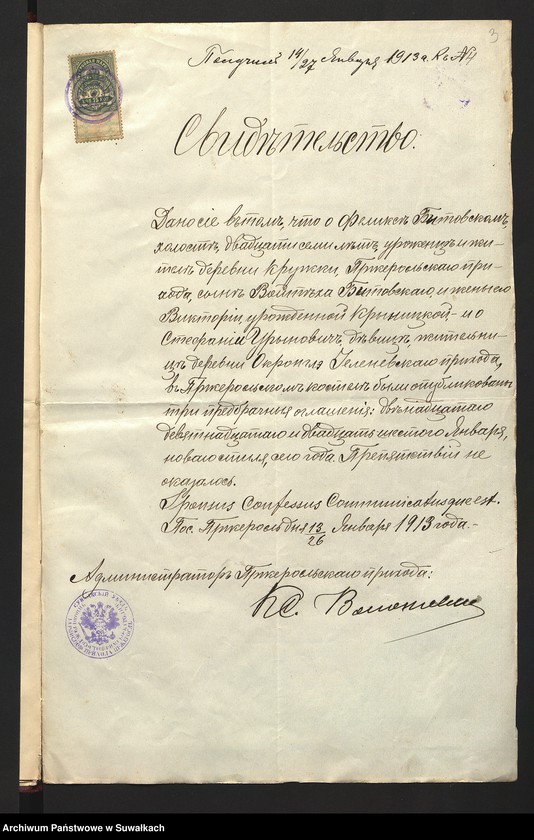 3
Получилъ 14/27 Января 1913 г. Къ №4
Свидѣтельство.
Дано сіе въ томъ, что о Феликсѣ Битовскомъ,
холостѣ, двадцати семи лѣтъ, уроженцѣ и жи-
телѣ деревни Кружки, Пржерольскаго при-
хода, сынѣ Войтѣха Битовскаго, и жены его
Викторіи, урожденной Крыницкой - и о
Стефаніи Урынович, дѣвицѣ, жительни-
цѣ деревни Окронгле Еленевскаго прихода,
въ Пржерольскомъ костелѣ были опубликованы
три предбрачныя оглашенія: двѣнадцатаго
девятнадцатаго и двадцать шестого Января,
новаго стиля, сего года. Препятствій не
оказалось.
Sponsus Confessus Communicatusque est.
Пос. Пржеросль дня 13/26 Января 1913 года.-
Администраторъ Пржерольскаго прихода:
Кс.
Archiwum Państwowe w Suwałkach